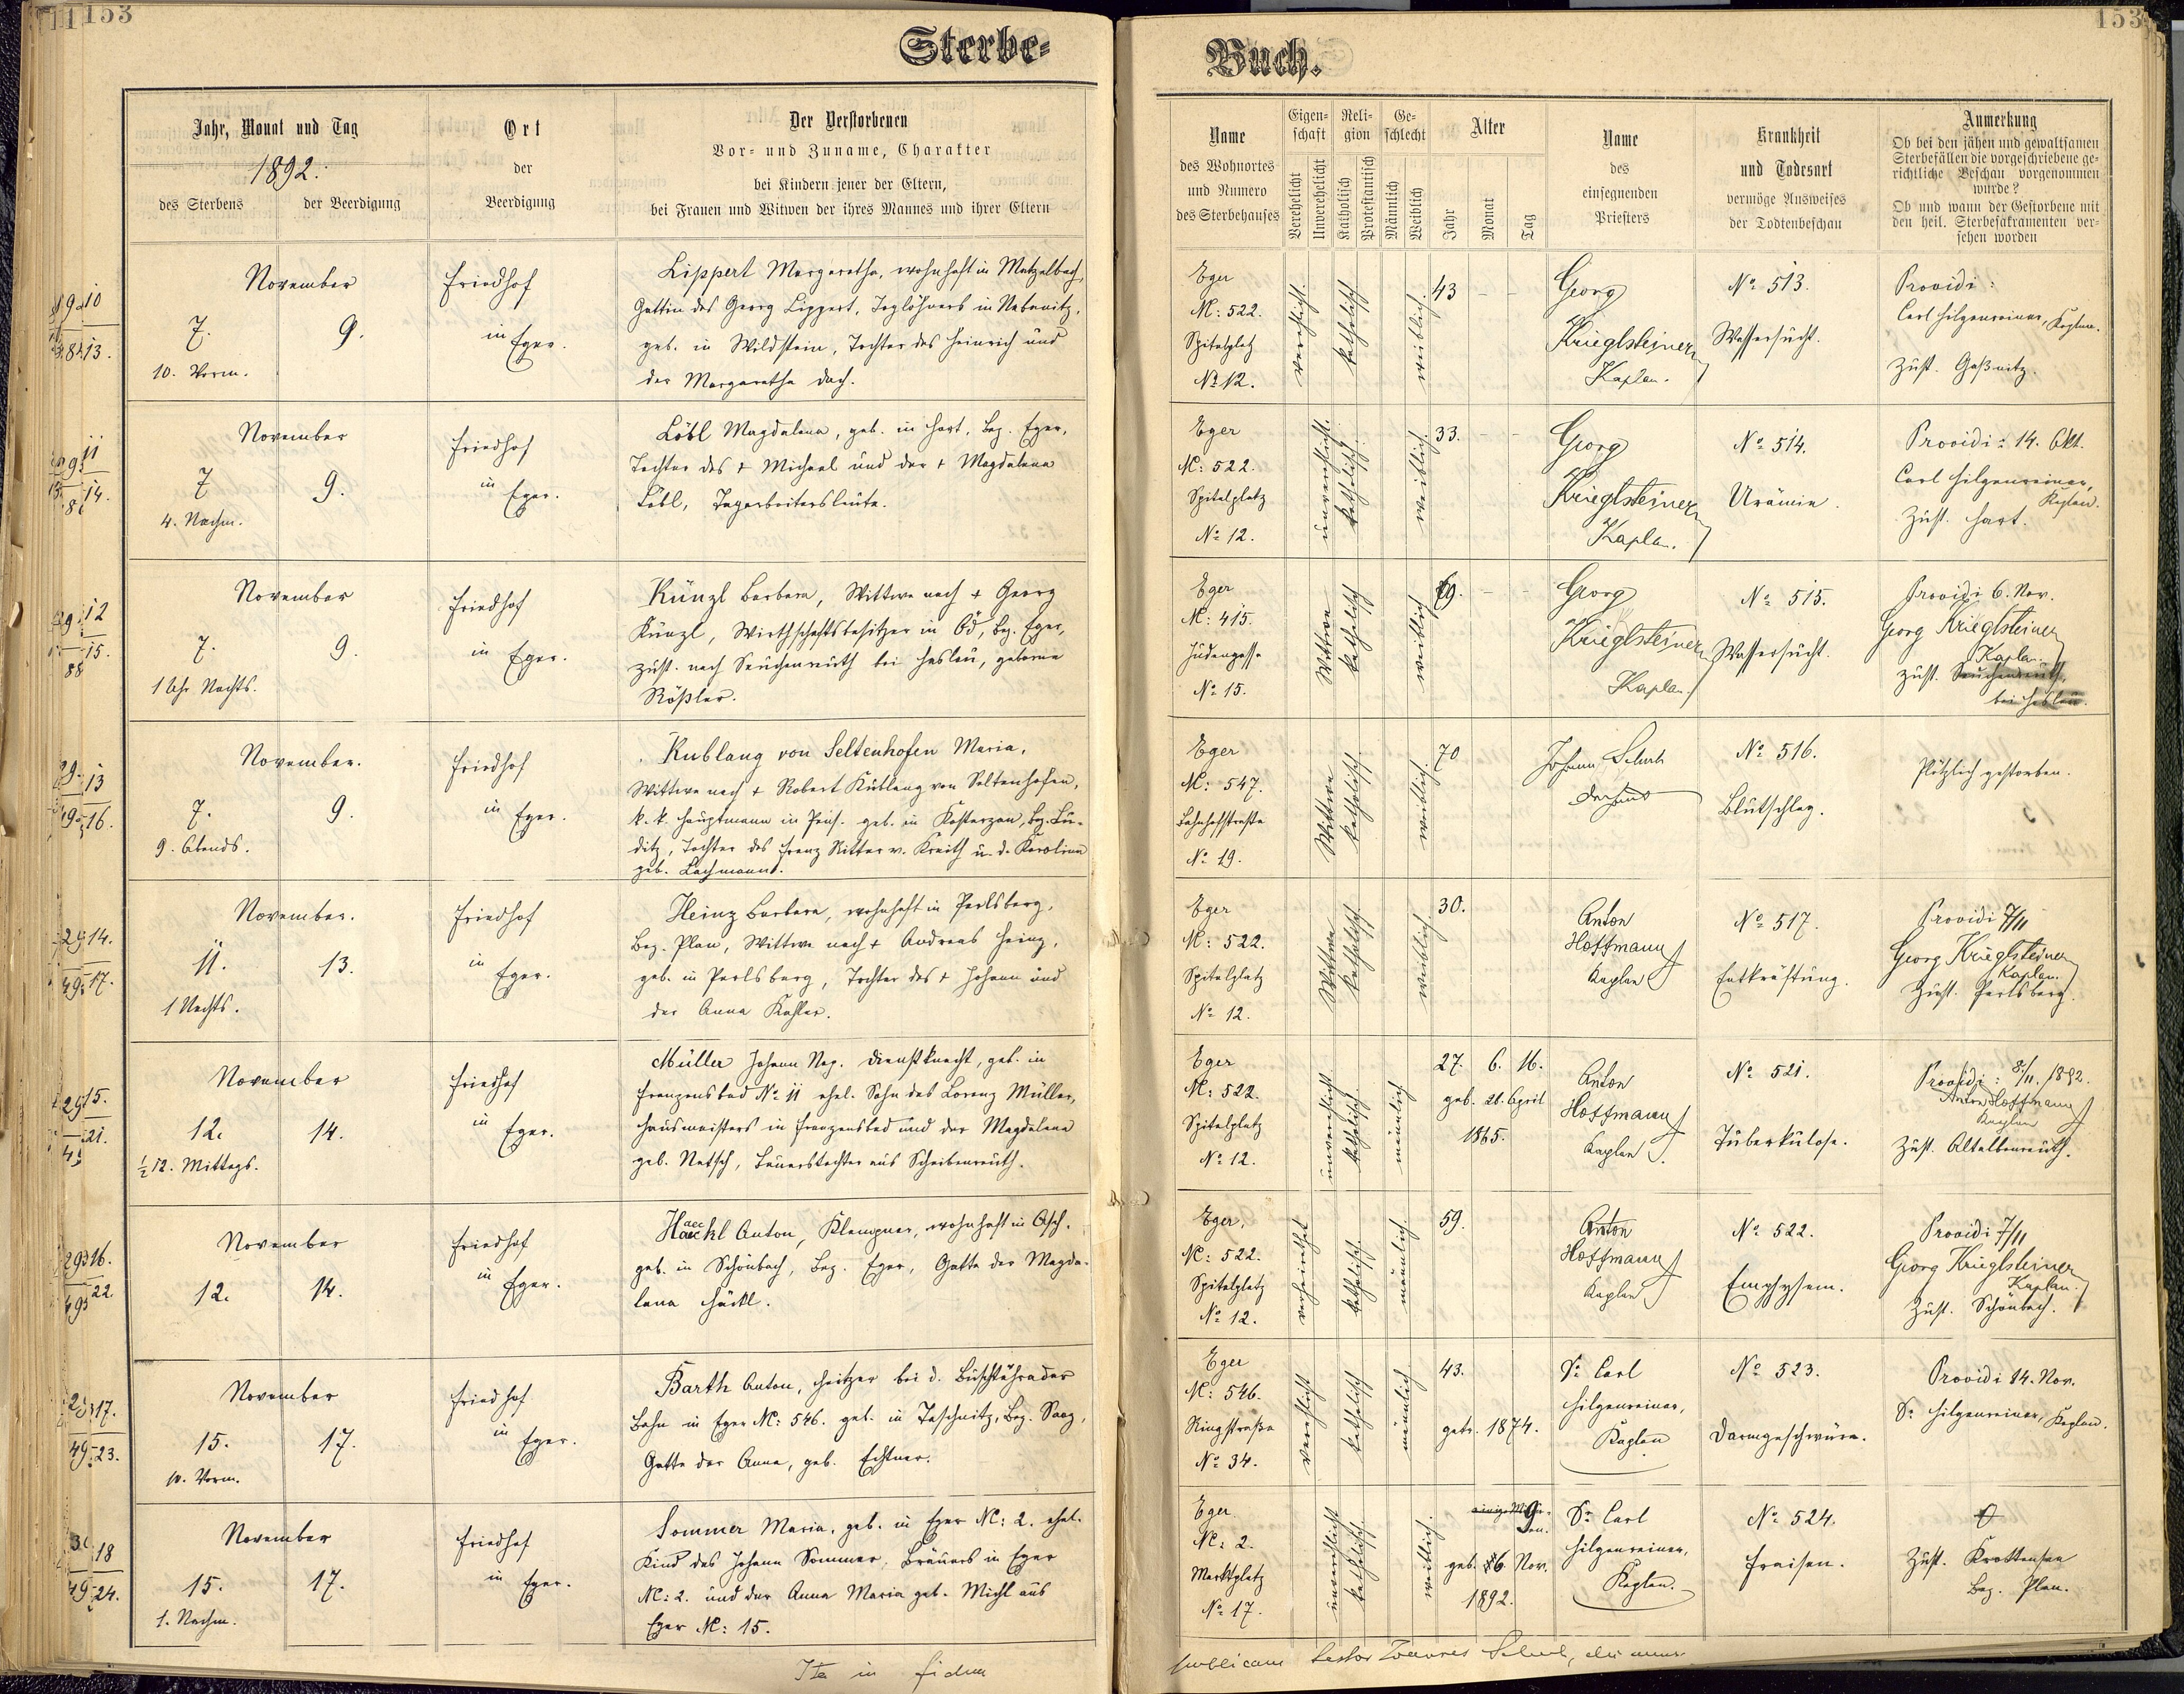 153
Sterbe-
Jahr, Monat und Tag
1892.
des Sterbens
der Beerdigung
Ort
der
Beerdigung
Der Verstorbenen
Vor- und Zuname, Charakter
bei Kindern jener der Eltern,
bei Frauen und Witwen der ihres Mannes und ihrer Eltern
November
7.
9.
10. Vorm.
Friedhof
in Eger.
Lippert Margaretha, wohnhaft in Matzelbach,
Gattin des Georg Lippert, Taglöhners in Nebanitz,
geb. in Wildstein, Tochter des Heinrich und
der Margaretha Dach.
November
7
9.
4. Nachm.
Friedhof
in Eger.
Löbl Magdalena, geb. in Hart, Bez. Eger,
Tochter des + Michael und der + Magdalena
Löbl, Tagarbeitersleute.
November
7.
9.
1 Uhr Nachts.
Friedhof
in Eger.
Künzl Barbara, Wittwe nach + Georg
Künzl, Wirthschaftsbesitzer in Öd, Bez. Eger,
zust. nach Seichenreuth bei Haslau, geborne
Rößler.
November.
7.
9.
9. Abends.
Friedhof
in Eger.
Kublang von Seltenhofen Maria,
Wittwe nach + Robert Kublang von Seltenhofen,
k. k. Hauptmann in Pens. geb. in Kosterzan, Bez. Lu-
ditz, Tochter des Franz Ritter v. Kreith u. d. Karolina
geb. Lachmann.
November.
11.
13.
1 Nachts.
Friedhof
in Eger.
Heinz Barbara, wohnhaft in Perlsberg,
Bez. Plan, Wittwe nach + Andreas Heinz,
geb. in Perlsberg, Tochter des + Johann und
der Anna Kohler.
November
12.
14.
½12. Mittags.
Friedhof
in Eger.
Müller Johann Nep. Dienstknecht, geb. in
Franzensbad No 11 ehel. Sohn des Lorenz Müller,
Hausmeisters in Franzensbad und der Magdalena
geb. Netsch, Bauerstochter aus Scheibenreuth.
November
12.
14.
Friedhof
in Eger.
Haeckl Anton, Klempner, wohnhaft in Asch,
geb. in Schönbach, Bez. Eger, Gatte der Magda-
lena Häckl.
November
15.
17.
10. Vorm.
Friedhof
in Eger.
Barth Anton, Heitzer bei d. Buschtěhrader
Bahn in Eger NC: 546. geb. in Teschnitz, Bez. Saaz,
Gatte der Anna, geb. Echtner.
November
15.
17.
1. Nachm.
Friedhof
in Eger.
Sommer Maria, geb. in Eger NC: 2. ehel.
Kind des Johann Sommer, Bräuers in Eger
NC: 2. und der Anna Maria geb. Michl aus
Eger NC: 15.
Ita in fidem
153
Buch.
Name
des Wohnortes
und Numero
des Sterbehauses
Eigen-
schaft
Verehelicht
Unverehelicht
Reli-
gion
Katholisch
Protestantisch
Ge-
schlecht
Männlich
Weiblich
Alter
Jahr
Monat
Tag
Name
des
einsegnenden
Priesters
Krankheit
und Todesart
vermöge Ausweises
der Todtenbeschau
Anmerkung
Ob bei den jähen und gewaltsamen
Sterbefällen die vorgeschriebene ge-
richtliche Beschau vorgenommen
wurde?
Ob und wann der Gestorbene mit
den heil. Sterbesakramenten ver-
sehen worden
Eger
NC: 522.
Spitalplatz
No 12.
verehlicht.
katholisch
weiblich.
43 - -
Georg
Krieglsteiner
Kaplan.
No 513.
Wassersucht.
Providi:
Carl Hilgenreiner, Kaplan.
Zust. Gaßnitz.
Eger
NC: 522.
Spitalplatz
No 12.
unverehlicht.
katholisch.
weiblich.
33. - -
Georg
Krieglsteiner
Kaplan.
No 514.
Urämie.
Providi: 14. Okt.
Carl Hilgenreiner,
Kaplan.
Zust. Hart.
Eger
NC: 415.
Judengasse
No 15.
Wittwe
katholisch
weiblich
69. - -
Georg
Krieglsteiner
Kaplan.
No 515.
Wassersucht.
Providi 6. Nov.
Georg Krieglsteiner
Kaplan.
Zust. Seichenreuth,
bei Haslau.
Eger
NC: 547.
Bahnhofstraße
No 19.
Wittwe
katholisch.
weiblich.
70
Johann Schuh
Dechant
No 516.
Blutschlag.
Plötzlich gestorben.
Eger
NC: 522.
Spitalplatz
No 12.
Wittwe
katholisch.
weiblich
30.
Anton
Hoffmann
Kaplan
No 517.
Entkräftung.
Providi 7/11
Georg Krieglsteiner
Kaplan.
Zust. Perlsberg.
Eger
NC: 522.
Spitalplatz
No 12.
unverehlicht
katholisch.
männlich
27. 6. 16.
geb. 26. April
1865.
Anton
Hoffmann
Kaplan.
No 521.
Tuberkulose.
Providi: 8/11. 1892.
Anton Hoffmann
Kaplan
Zust. Altalbenreuth.
Eger,
NC: 522.
Spitalplatz
No 12.
verheirathet
katholisch.
männlich.
59.
Anton
Hoffmann
Kaplan
No 522.
Emphysem.
Providi 7/11
Georg Krieglsteiner
Kaplan.
Zust. Schönbach.
Eger
NC: 546.
Ringstraße
No 34.
verehlicht
katholisch
männlich
43.
getr. 1874.
Dr Carl
Hilgenreiner,
Kaplan
No 523.
Darmgeschwüre.
Providi 14. Nov.
Dr Hilgenreiner, Kaplan.
Eger
NC: 2.
Marktplatz
No 17.
unverehlicht
katholisch.
weiblich.
9
geb. 6 Nov.
1892.
Dr Carl
Hilgenreiner,
Kaplan.
No 524.
Fraisen.
Zust. Krottensee
Bez. Plan.
publicam testor Joannes Schuh,